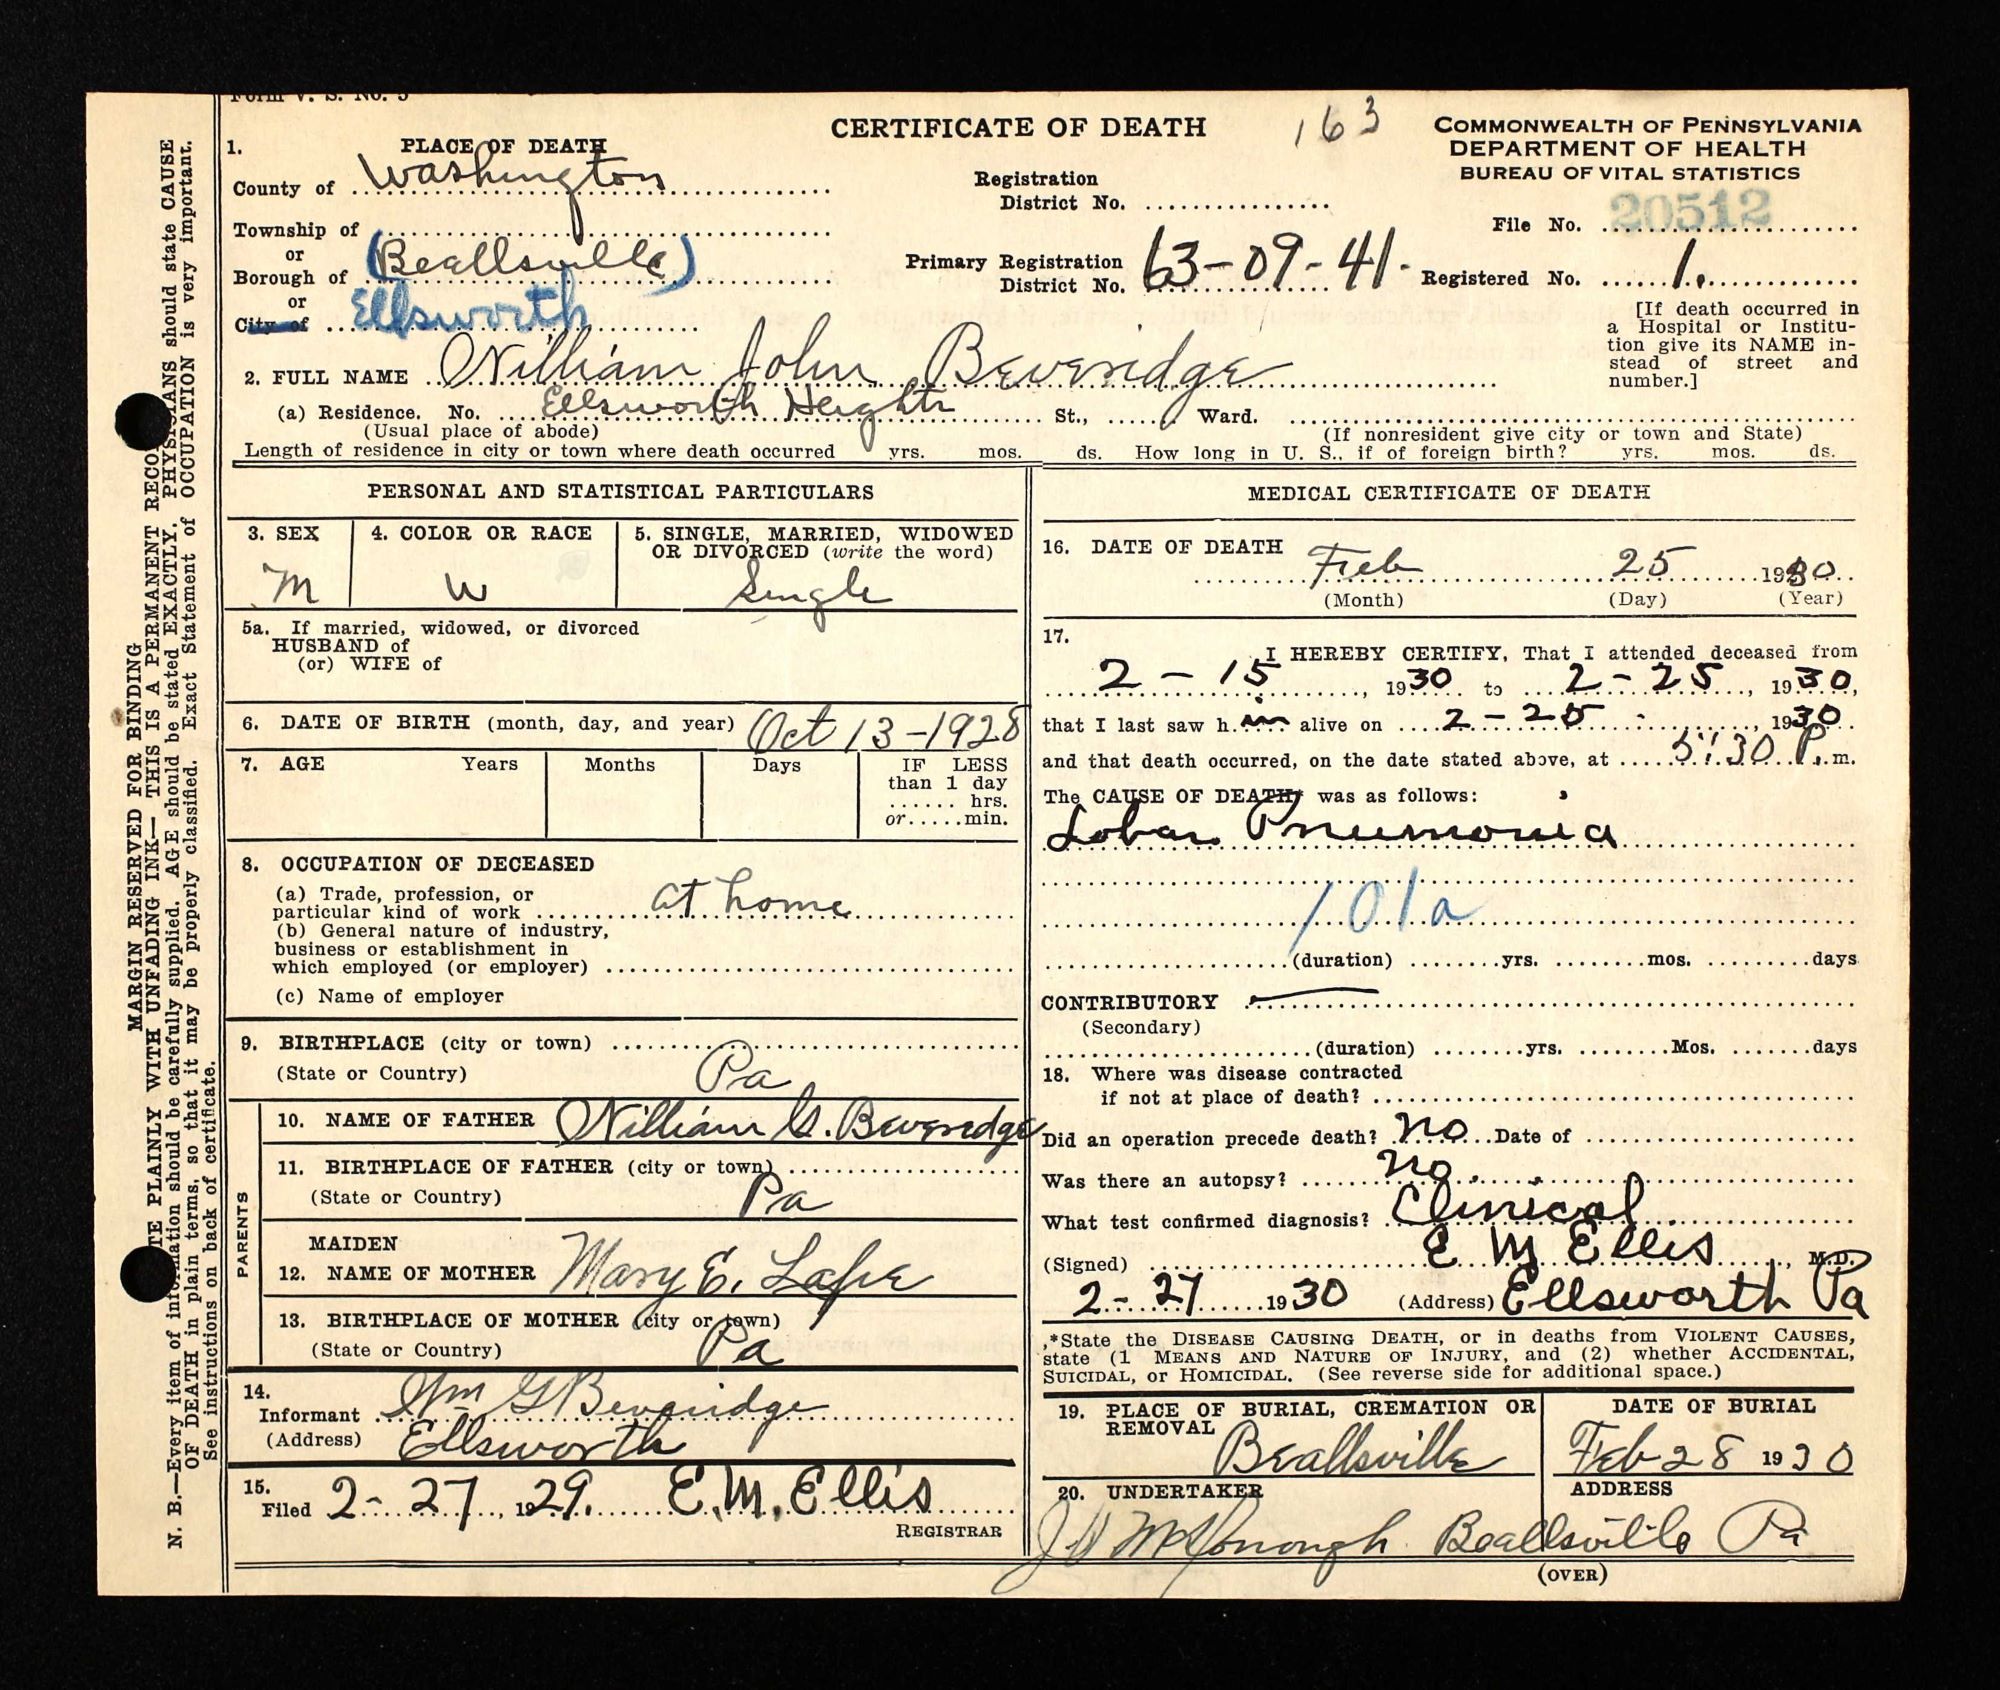 Form V. S. No. 5
CERTIFICATE OF DEATH
163
COMMONWEALTH OF PENNSYLVANIA
DEPARTMENT OF HEALTH
BUREAU OF VITAL STATISTICS
1. PLACE OF DEATH
County of Washington
Township of
or
Borough of (Beallsville)
or
City of Ellsworth
Registration
District No.
Primary Registration
District No. 63-09-41.
File No. 20512
Registered No. 1.
[If death occurred in
a Hospital or Institu-
tion give its NAME in-
stead of street and
number.]
2. FULL NAME William John Beveridge
(a) Residence. No. Ellsworth Heights St., Ward.
(Usual place of abode) (If nonresident give city or town and State)
Length of residence in city or town where death occurred yrs. mos. ds. How long in U. S., if of foreign birth? yrs. mos. ds.
PERSONAL AND STATISTICAL PARTICULARS
3. SEX
M
4. COLOR OR RACE
W
5. SINGLE, MARRIED, WIDOWED
OR DIVORCED (write the word)
Single
5a. If married, widowed, or divorced
HUSBAND of
(or) WIFE of
6. DATE OF BIRTH (month, day, and year) Oct 13-1928
7. AGE Years Months Days IF LESS
than 1 day
...... hrs.
or.....min.
8. OCCUPATION OF DECEASED
(a) Trade, profession, or
particular kind of work at home
(b) General nature of industry,
business or establishment in
which employed (or employer)
(c) Name of employer
9. BIRTHPLACE (city or town)
(State or Country) Pa
PARENTS
10. NAME OF FATHER William G. Beveridge
11. BIRTHPLACE OF FATHER (city or town)
(State or Country) Pa
MAIDEN
12. NAME OF MOTHER Mary E. Lape
13. BIRTHPLACE OF MOTHER (city or town)
(State or Country) Pa
14.
Informant Wm G Beveridge
(Address) Ellsworth
15.
Filed 2-27, 1929. E. M. Ellis
REGISTRAR
MEDICAL CERTIFICATE OF DEATH
16. DATE OF DEATH
Feb 25 1930
(Month) (Day) (Year)
17.
I HEREBY CERTIFY, That I attended deceased from
2-15, 1930 to 2-25, 1930,
that I last saw h im alive on 2-25, 1930
and that death occurred, on the date stated above, at 5:30 P. m.
The CAUSE OF DEATH* was as follows:
Lobar Pneumonia
101a
(duration) yrs. mos. days
CONTRIBUTORY
(Secondary)
(duration) yrs. Mos. days
18. Where was disease contracted
if not at place of death?
Did an operation precede death? No Date of
Was there an autopsy? No
What test confirmed diagnosis? Clinical
(Signed) E M Ellis, M.D.
2-27 1930 (Address) Ellsworth Pa
*State the DISEASE CAUSING DEATH, or in deaths from VIOLENT CAUSES,
state (1 MEANS AND NATURE OF INJURY, and (2) whether ACCIDENTAL,
SUICIDAL, or HOMICIDAL. (See reverse side for additional space.)
19. PLACE OF BURIAL, CREMATION OR
REMOVAL
Beallsville
DATE OF BURIAL
Feb 28 1930
20. UNDERTAKER
ADDRESS
Beallsville Pa
(OVER)
MARGIN RESERVED FOR BINDING
TE PLAINLY WITH UNFADING INK— THIS IS A PERMANENT RECO
N. B.—Every item of information should be carefully supplied. AGE should be stated EXACTLY. PHYSICIANS should state CAUSE
OF DEATH in plain terms, so that it may be properly classified. Exact Statement of OCCUPATION is very important.
See instructions on back of certificate.